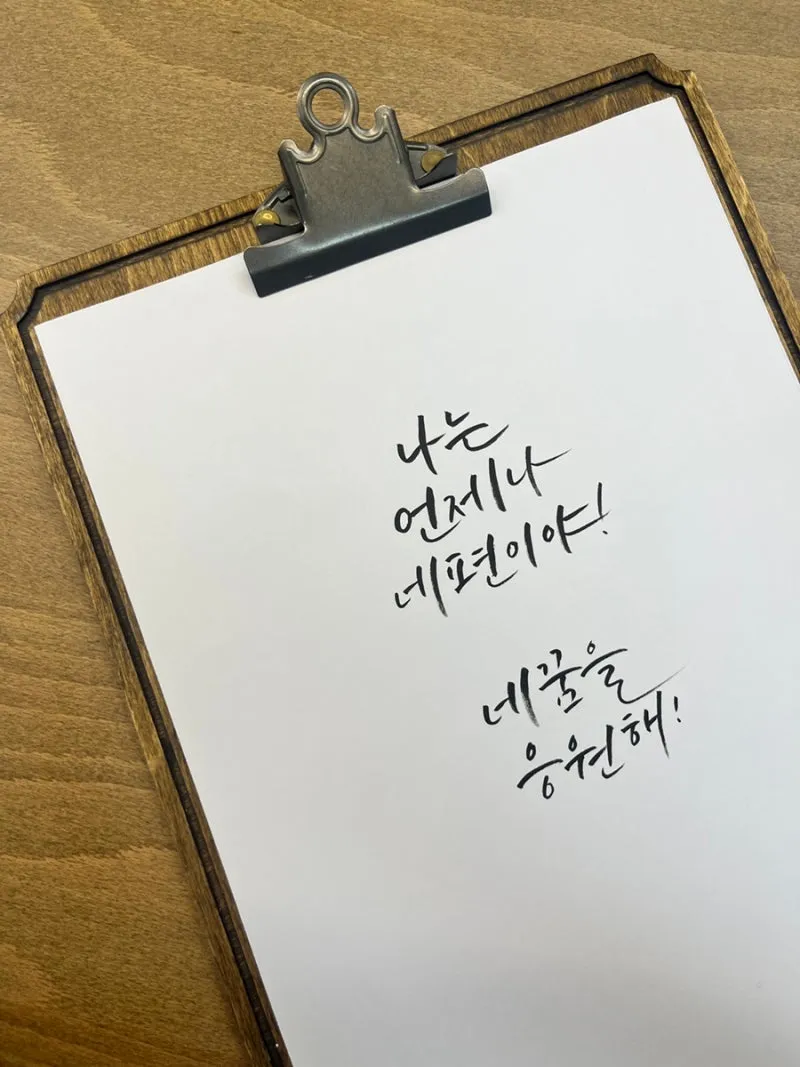 나는
언제나
네편이야!
네꿈을
응원해!